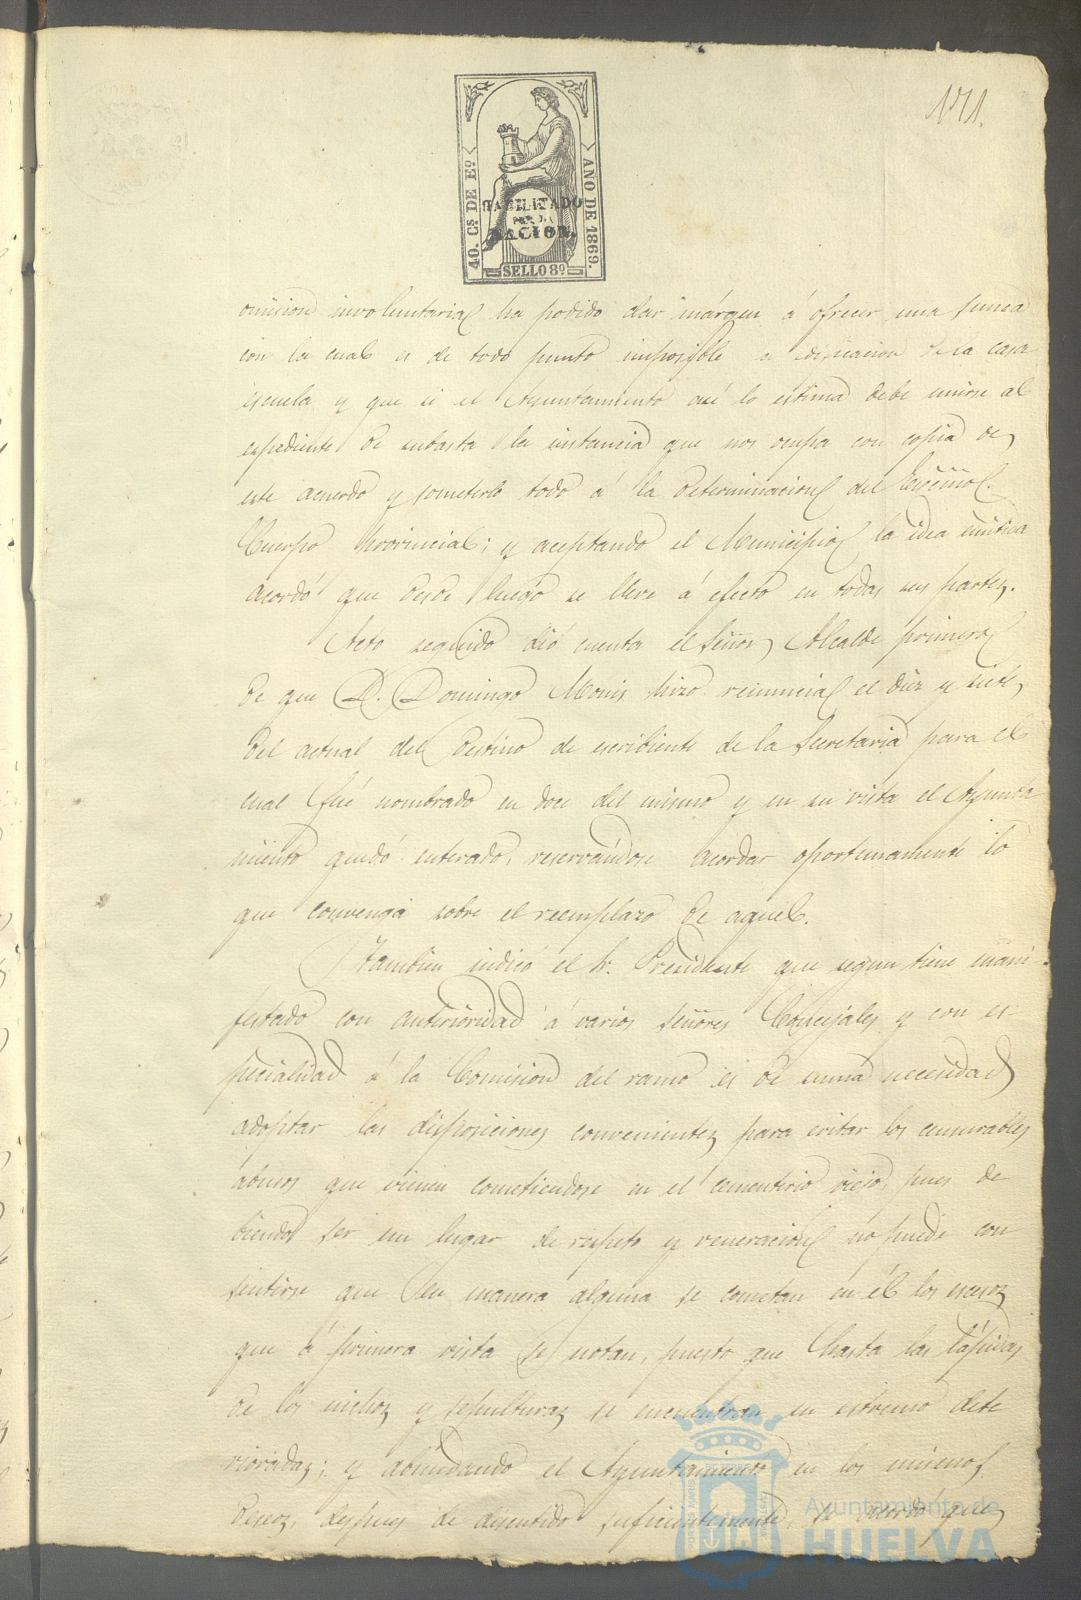 171.
40. Cs DE Eo
AÑO DE 1869.
HABILITADO
POR LA
NACION.
SELLO 8º
omision involuntaria ha podido dar márgen á ofrecer una suma
con la cual es de todo punto imposible la edificacion de la casa
escuela y que si el Ayuntamiento así lo estima debe unirse al
espediente de subasta la instancia que nos ocupa con copia de
este acuerdo y someterlo todo á la determinacion del Escmo.
Cuerpo Provincial; y aceptando el Municipio la idea emitida
acordó que desde luego se lleve á efecto en todas sus partes.
Acto seguido dió cuenta el Señor Alcalde primero
de que D. Domingo Monis hizo renuncia el diez y siete
del actual del destino de escribiente de la Secretaria para el
cual fué nombrado en doce del mismo y en su vista el Ayunta
miento quedó enterado, reservándose acordar oportunamente lo
que convenga sobre el reemplazo de aquel.
Tambien indicó el Sr. Presidente que segun tiene mani
festado con anterioridad á varios señores Concejales y con es-
pecialidad á la Comision del ramo es de suma necesidad
adoptar las disposiciones convenientes para evitar los censurables
abusos que vienen cometiendose en el cementerio viejo, pues de
biendo ser un lugar de respeto y veneracion no puede con
sentirse que en manera alguna se cometan en él los escesos
que á primera vista se notan, puesto que hasta las lápidas
de los nichos y sepulturas se encuentran en estremo dete
rioradas; y abundando el Ayuntamiento en los mismos
deseos, despues de discutido suficientemente, se acordó que
Ayuntamiento de
HUELVA